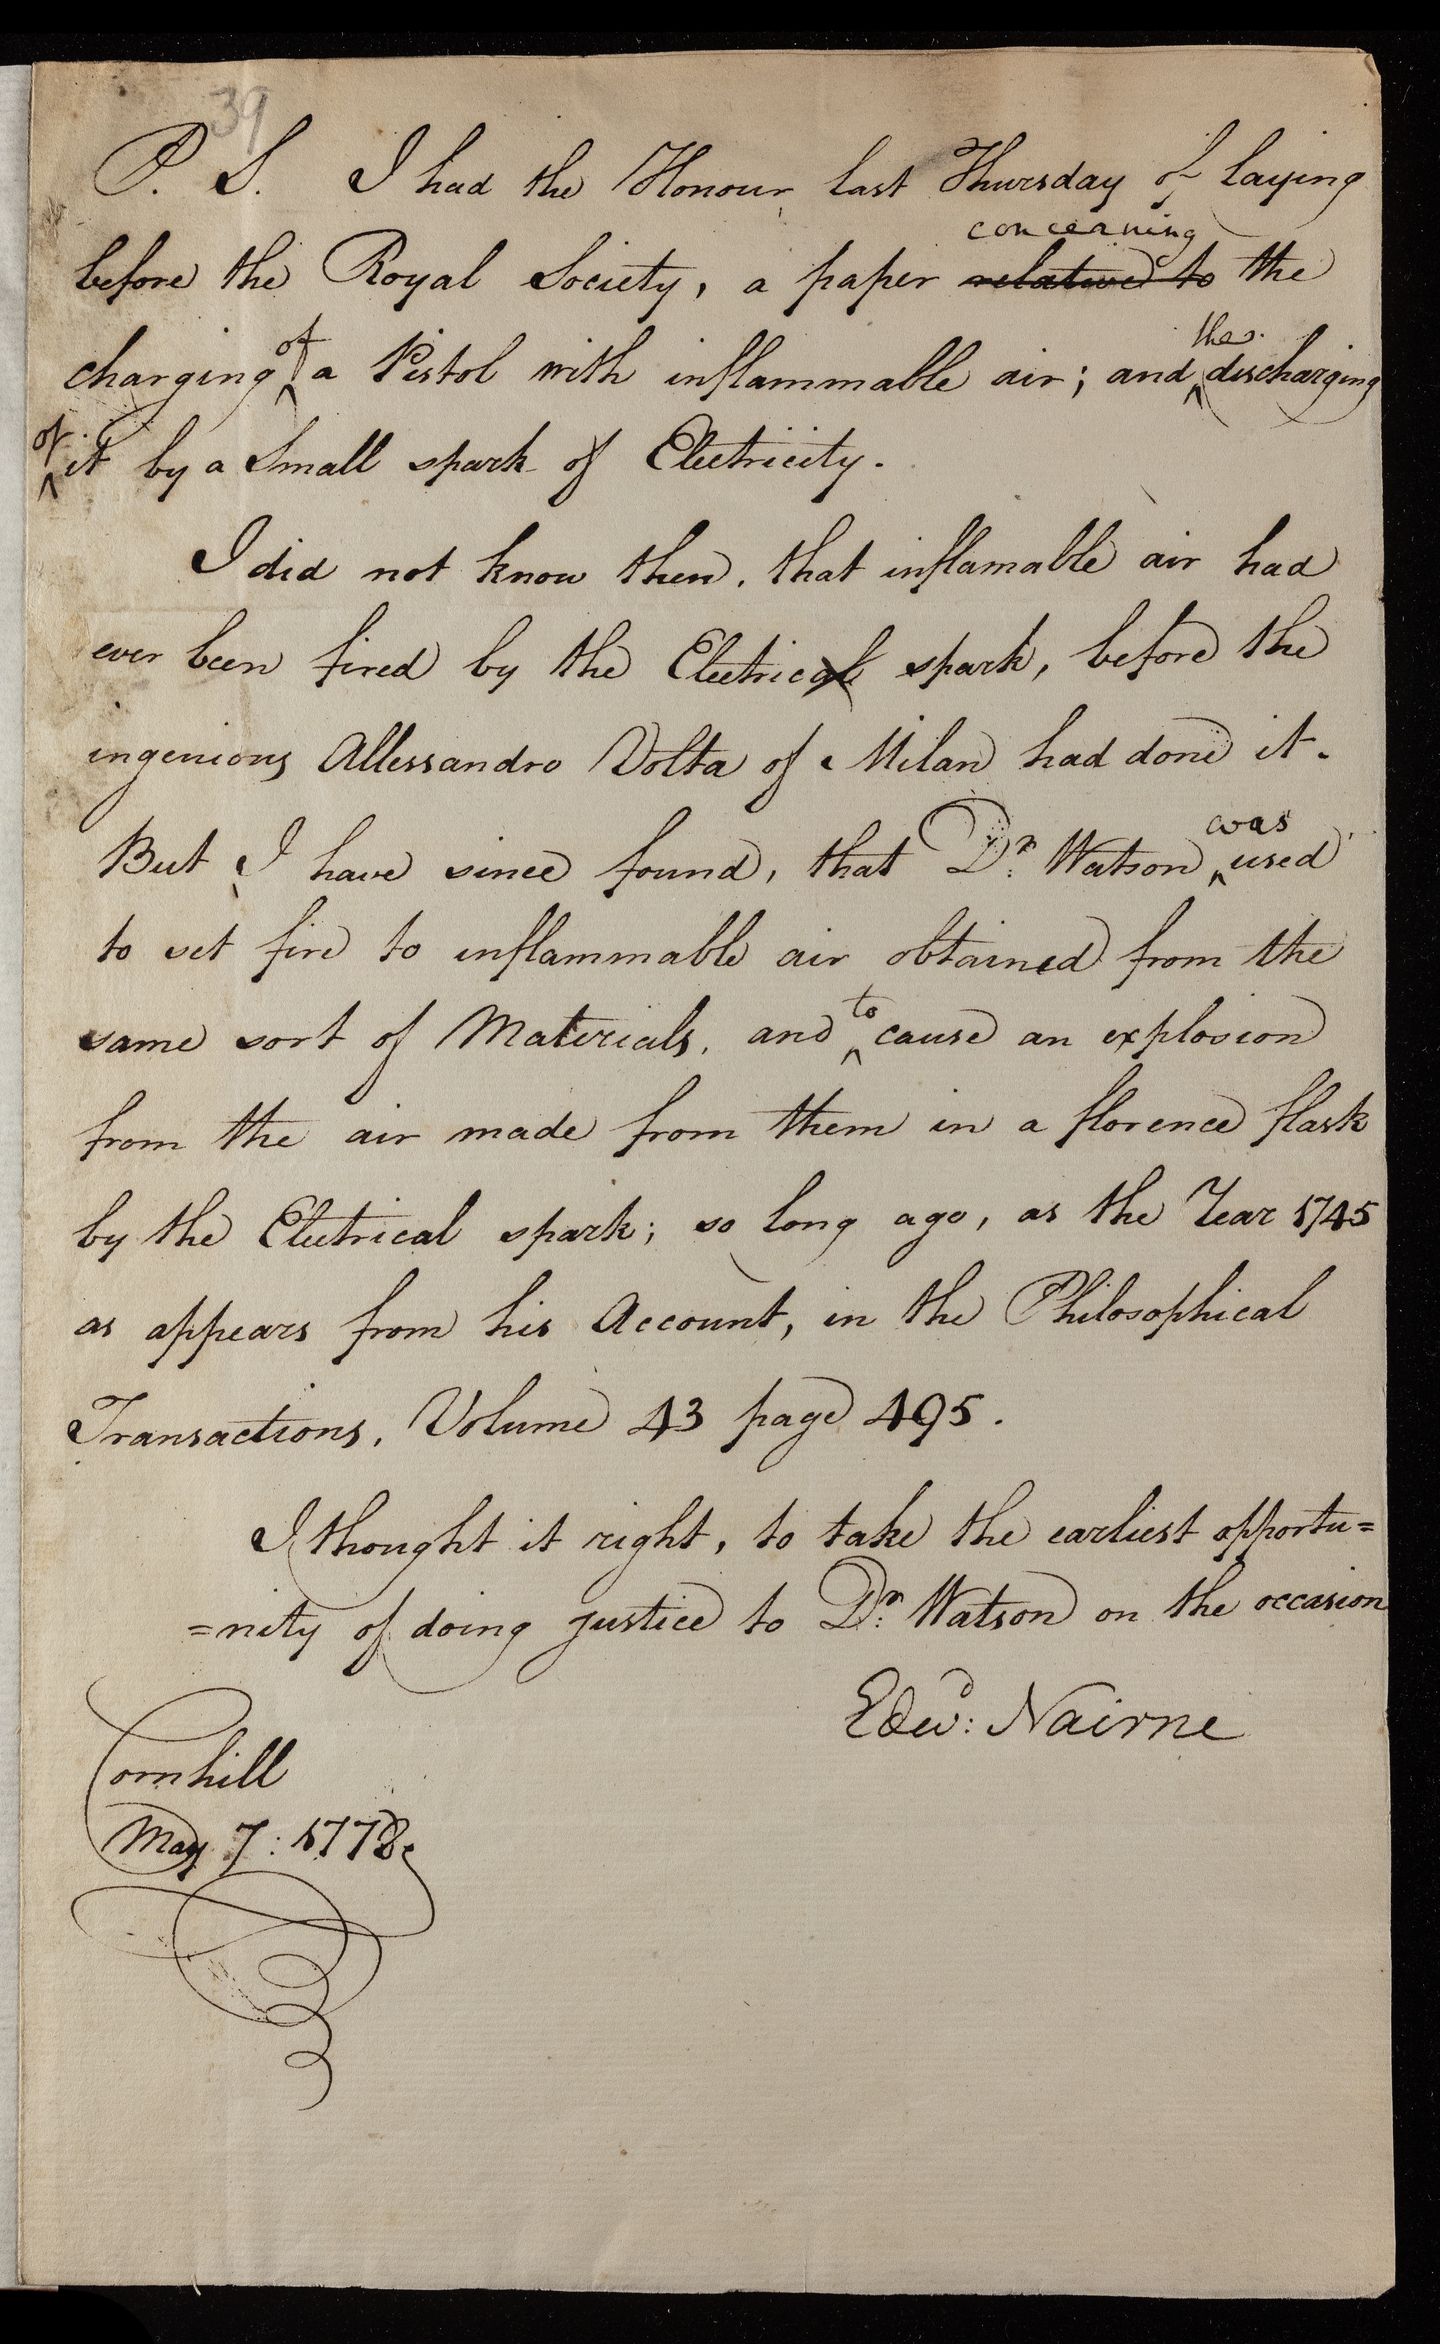 39
P. S. I had the Honour last Thursday of laying
concerning
before the Royal Society, a paper relative to the
of the
charging a Pistol with inflammable air; and discharging
of
it by a Small spark of Electricity.
I did not know then, that inflamable air had
ever been fired by the Electrical spark, before the
ingenious Allessandro Volta of Milan had done it.
was
But I have since found, that Dr. Watson used
to set fire to inflammable air obtained from the
to
same sort of Materials, and cause an explosion
from the air made from them in a florence flask
by the Electrical spark; so long ago, as the Year 1745
as appears from his Account, in the Philosophical
Transactions, Volume 43 page 495.
I thought it right, to take the earliest opportu=
=nity of doing justice to Dr. Watson on the occasion
Edwd: Nairne
Cornhill
May 7: 1778